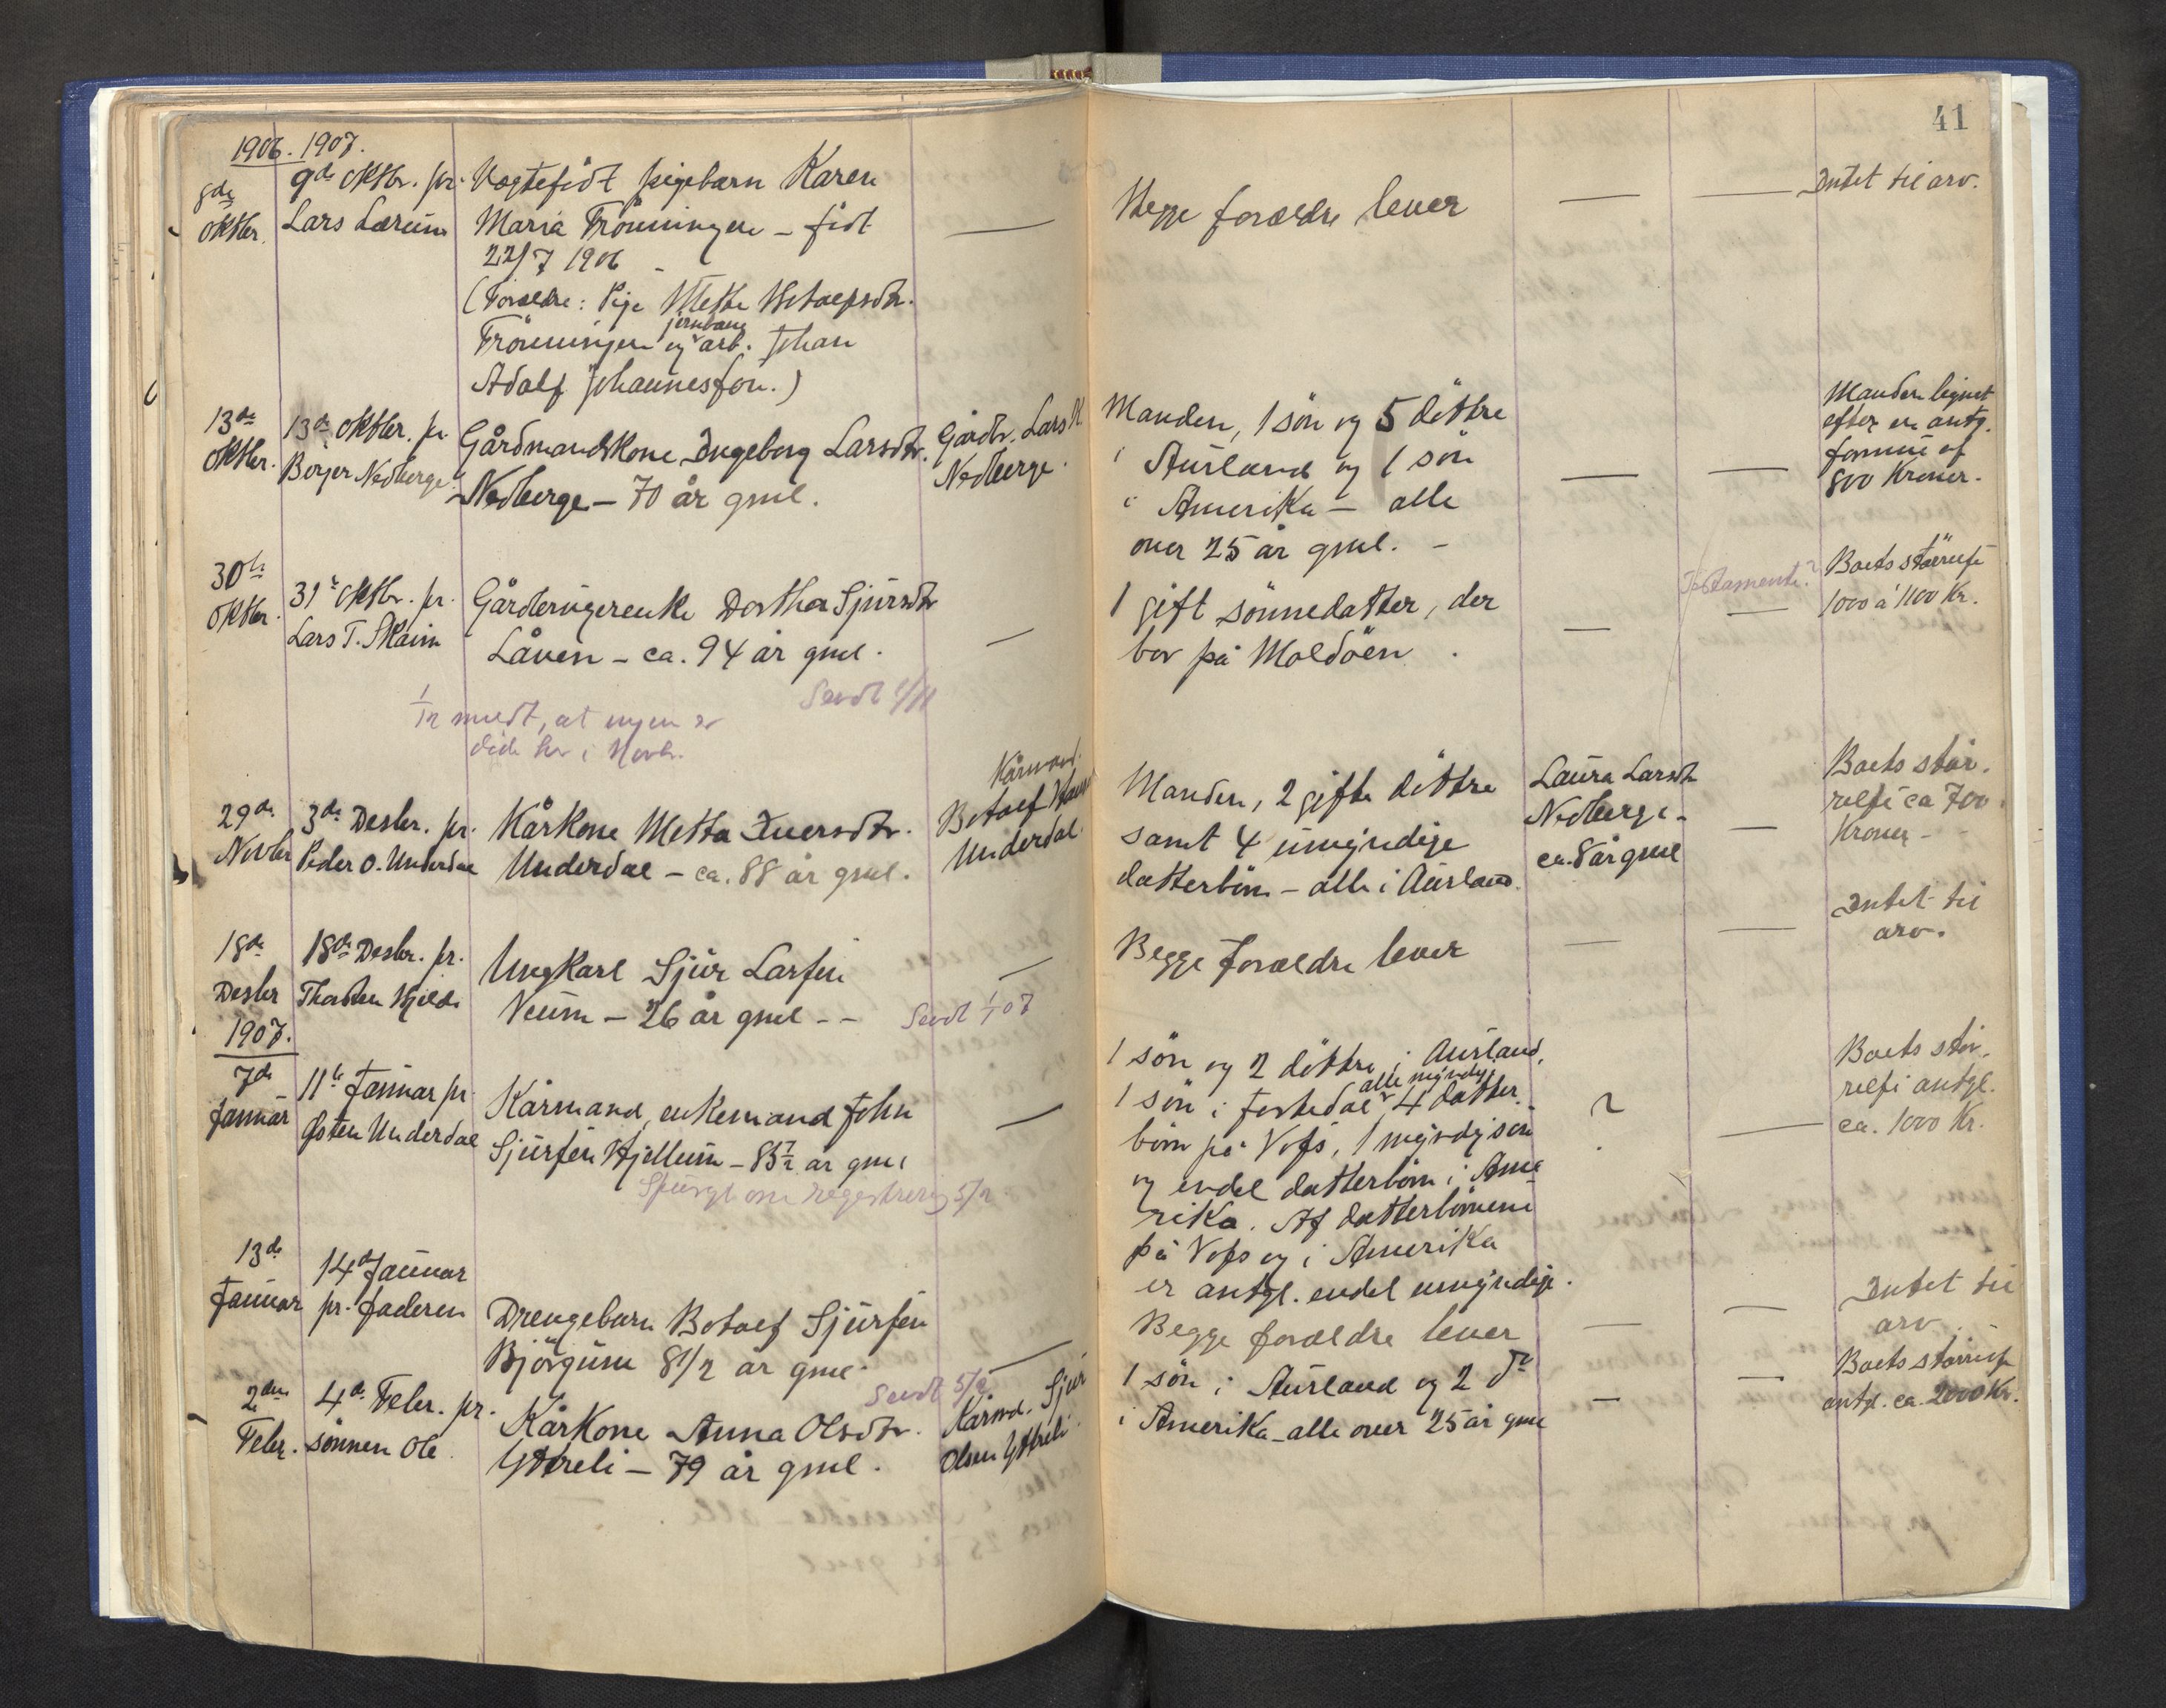 41
1906. 1907.
8de
oktbr.
9de oktbr. pr.
Lars Lærum
Uægtefödt pigebarn Karen
Maria Frönningen – född
22/7 1906 –
(Forældre: Pige Mette Botolfsdtr.
jernbane
Frönningen og arb. Johan
Adolf Johannesson.)
—
Begge forældre lever
—
—
Intet til arv.
13de
oktbr.
13de oktbr. pr.
Börjer Nedberge
Gårdmandskone Ingeborg Larsdtr.
Nedberge – 70 år gml.
Gårdbr. Lars
Nedberge.
Manden, 1 sön og 5 döttre
i Aurland og 1 sön
i Amerika – alle
over 25 år gml. –
—
—
Manden lignet
efter en antg.
formue af
800 Kroner.
30te
oktbr.
31te oktbr. pr.
Lars T. Skaim
Gårdbrugerenke Dorthea Sjursdtr
Låven – ca. 94 år gml.
Sendt 1/11
—
1 gift sönnedatter, der
bor på Moldöen.
—
Testamente?
—
Boets störrelse
1000 à 1100 Kr.
1/12 meldt, at ingen er
döde her i Novbr.
29de
Novbr
3de Desbr. pr.
Peder O. Underdal
Kårkone Metta Iversdtr.
Underdal – ca. 88 år gml.
Kårmand
Botolf
Underdal.
Manden, 2 gifte döttre
samt 4 umyndige
datterbörn – alle i Aurland.
Laura Larsdtr
Nedberge –
ca. 8 år gml
—
Boets stör-
relse ca 700
Kroner –
18de
Desbr
18de Desbr. pr.
Thorsten Gjelde
Ungkarl Sjur Larsen
Veum – 26 år gml – –
—
Sendt 1/1 07
Begge forældre lever
—
—
Intet til
arv.
1907.
7de
Januar
11te Januar pr.
Gsten Underdal
Kårmand, enkemand John
Sjursen Gjellum – 83 1/2 år gml
Spurgt om registrering 5/2
—
1 sön og 2 döttre i Aurland,
alle myndig
1 sön i Jostedal, 4 datter-
börn på Voss, 1 myndig sön
og endel datterbörn i Ame-
rika. Af datterbörnene
på Voss og i Amerika
er antgl. endel umyndige.
?
—
Boets stör-
relse antgl.
ca. 1000 Kr.
13de
Januar
14de Januar
pr. faderen
Drengebarn Botolf Sjursen
Björgum 8 1/2 år gml.
—
Begge forældre lever
—
—
Intet til
arv.
2den
Febr.
4de Febr. pr.
sönnen Ole
Sendt 5/2
Kårkone Anna Olsdtr.
Ytreli – 79 år gml.
Kårmd. Sjur
Olsen Ytreli
1 sön i Aurland og 2 do
i Amerika – alle over 25 år gml
—
—
Boets störrelse
antgl. ca. 2000 Kr.